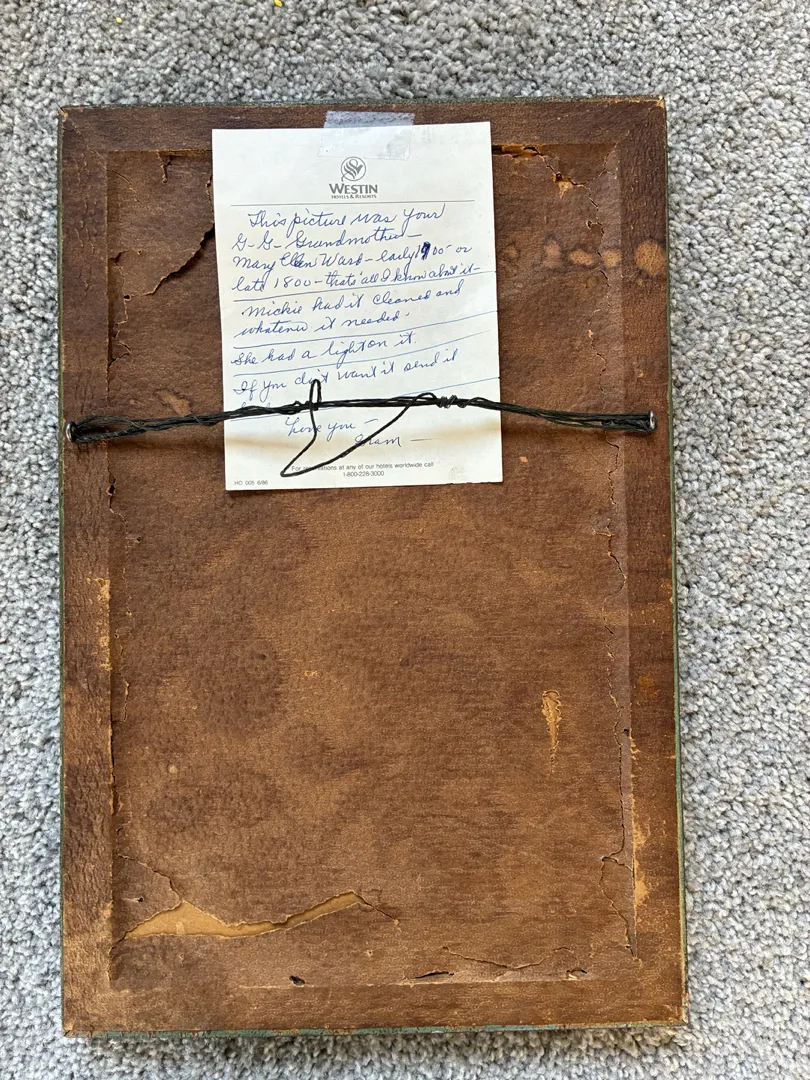 WESTIN
HOTELS & RESORTS
This picture was your
G-G-Grandmother-
Mary Ellen Ward - early 1900 or
late 1800 - that's all I know about it -
Mickie had it cleaned and
whatever it needed.
She had a light on it.
If you don't want it send it
Love you -
Gram -
For reservations at any of our hotels worldwide call
1-800-228-3000
HO 005 6/86